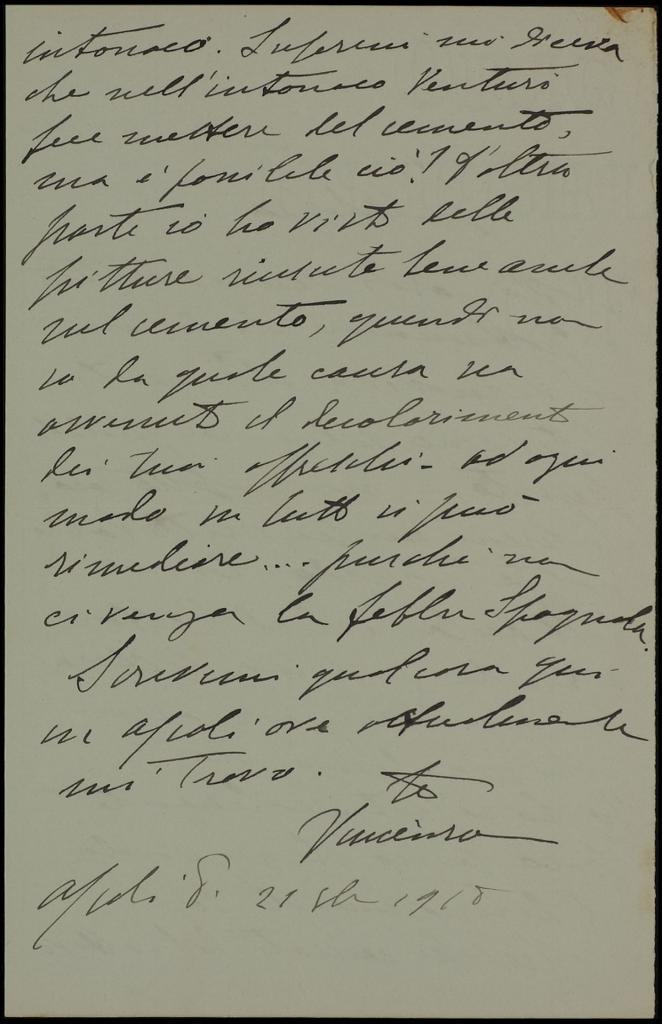 intonaco. Luperini mi diceva
che nell'intonaco Venturi
fece mettere del cemento,
ma è possibile ciò! D'altra
parte io ho visto delle
pitture riuscite bene anche
sul cemento, quindi non
so da quale causa sia
avvenuto il decolorimento
dei tuoi affreschi - ad ogni
modo su tutto si può
rimediare.... purchè non
ci venga la febbre Spagnola.
Scrivimi qualcosa qui
in Ascoli ove attualmente
mi trovo.
to
Vincenzo
Ascoli 21 1918